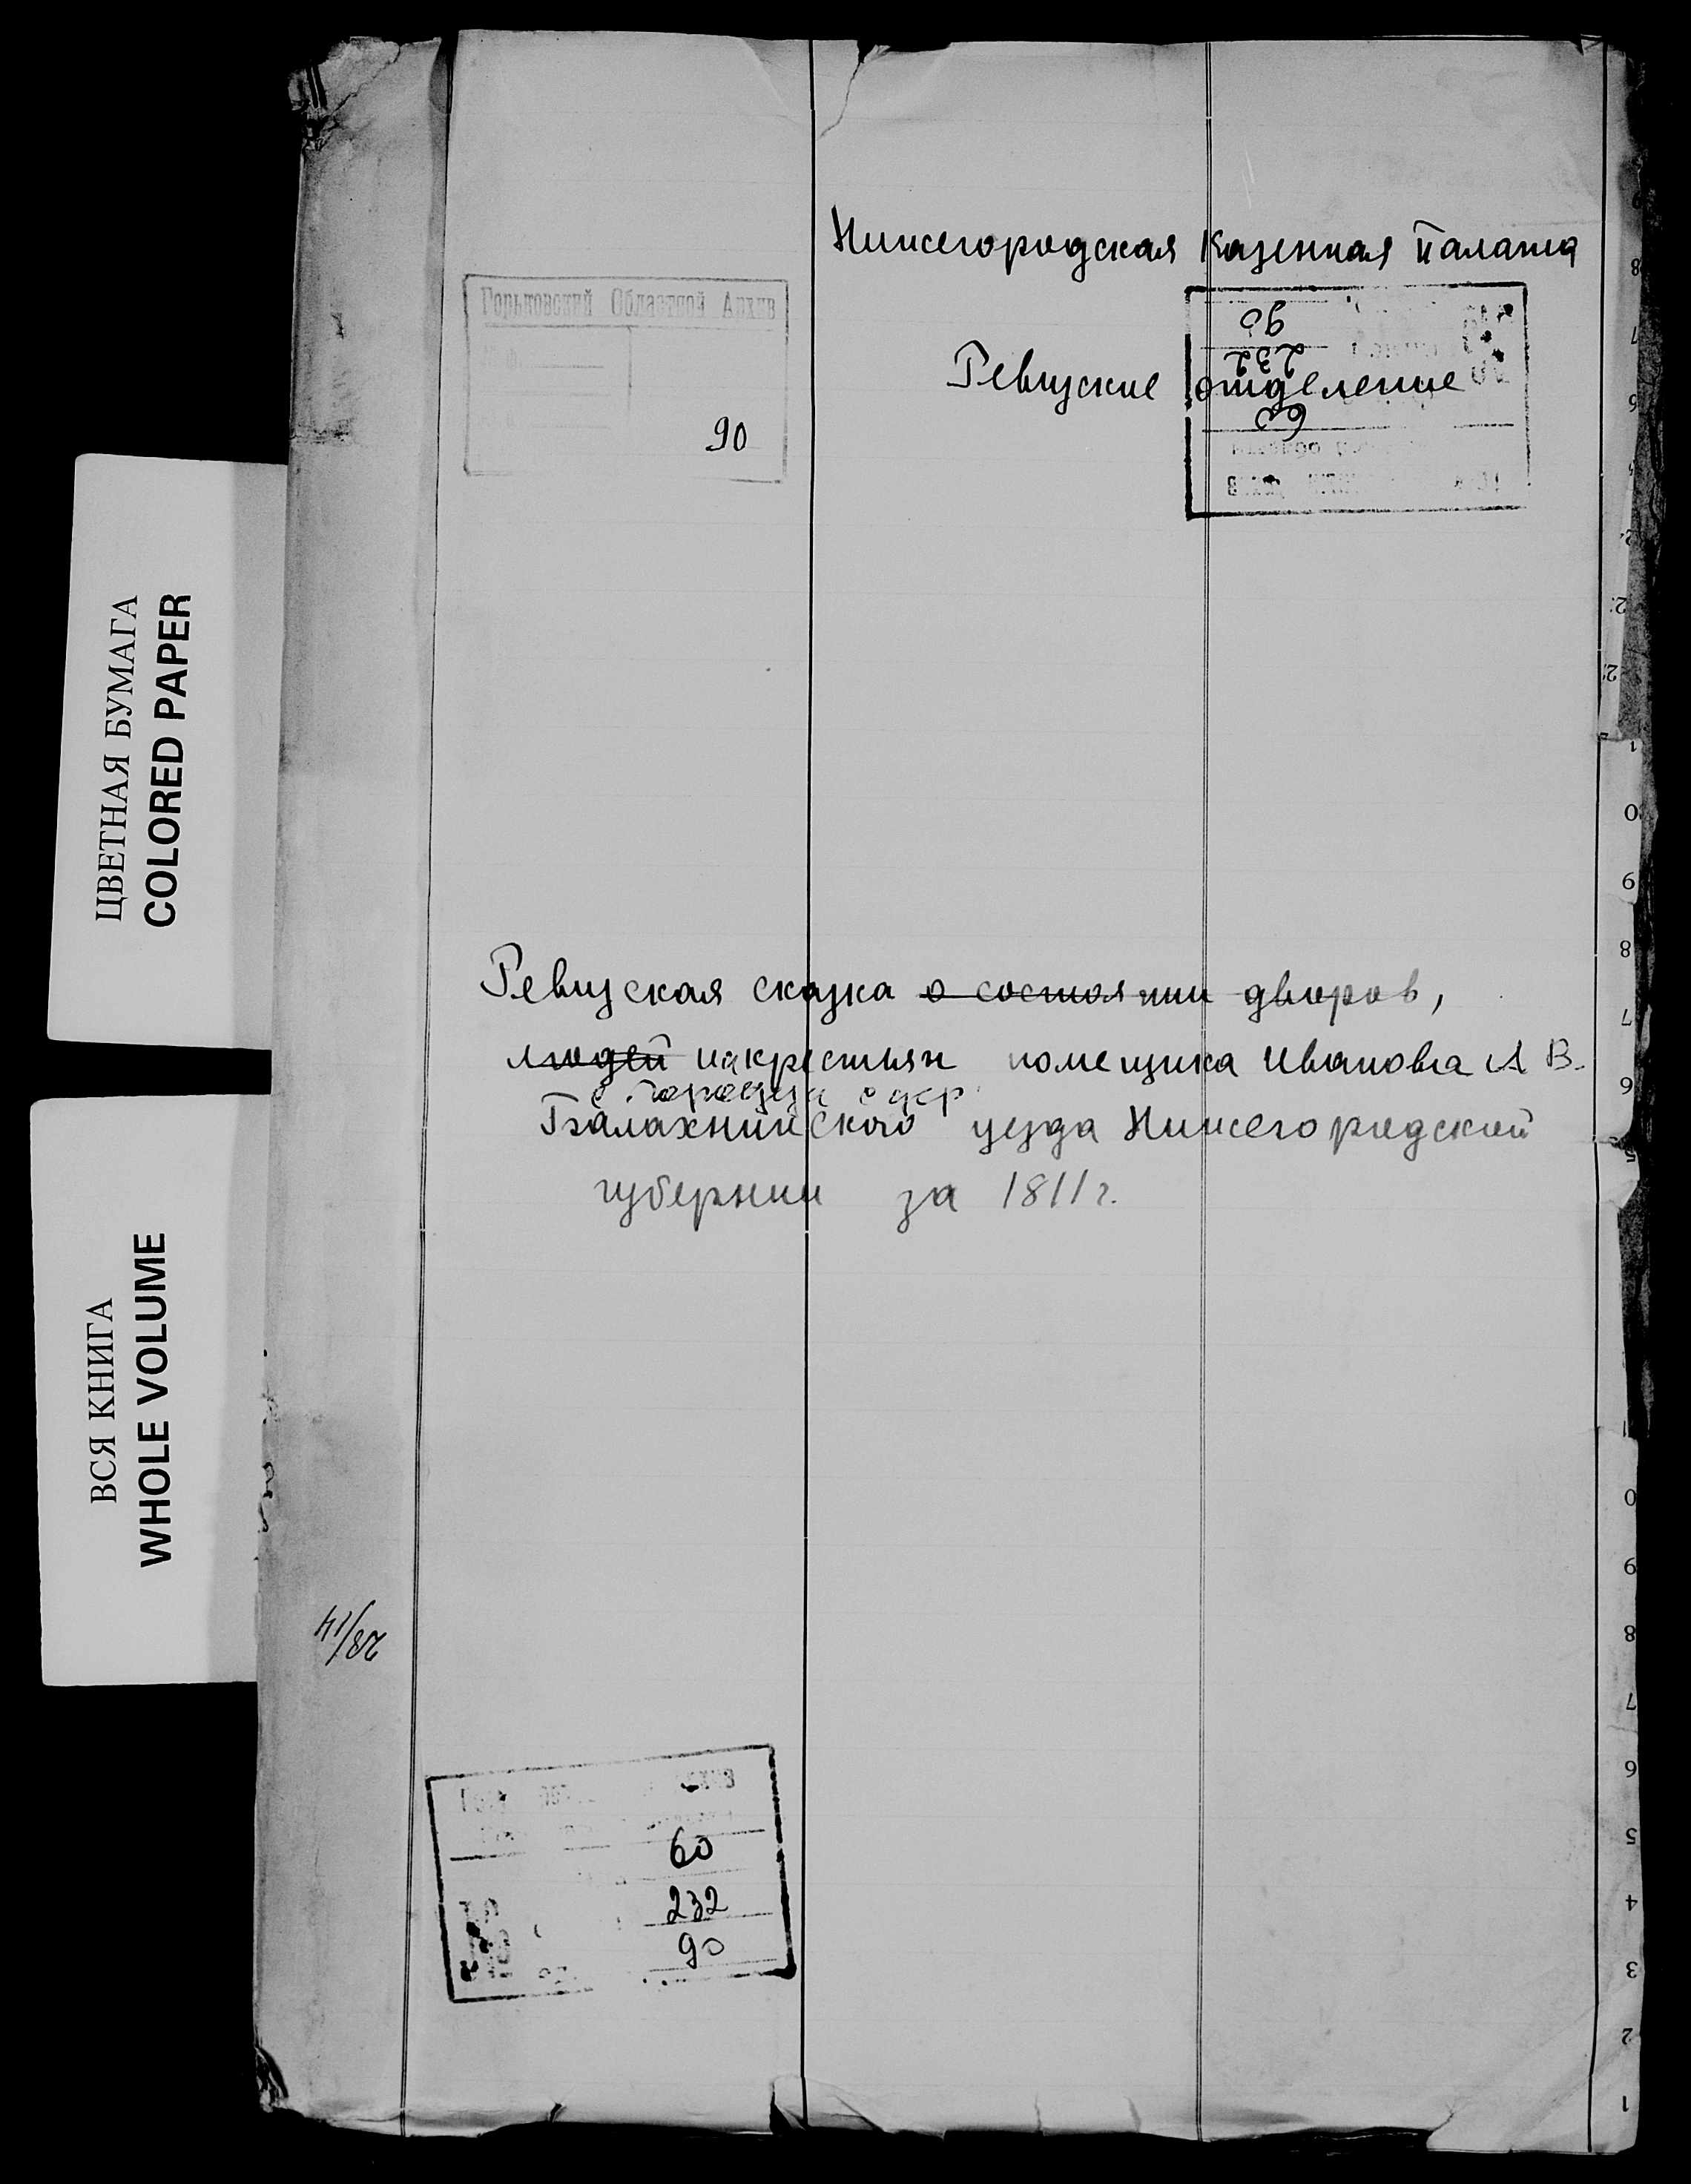 Нижегородская Казенная Палата
Горьковский Областной Архив
90
Ревизские отделение
90
232
60
ЦВЕТНАЯ БУМАГА
COLORED PAPER
Ревизская сказка о состоянии дворов,
людей на крестьян помещика Иванова А В.
с. Городца с дер.
Балахнинского уезда Нижегородской
губернии за 1811 г.
ВСЯ КНИГА
WHOLE VOLUME
60
232
90